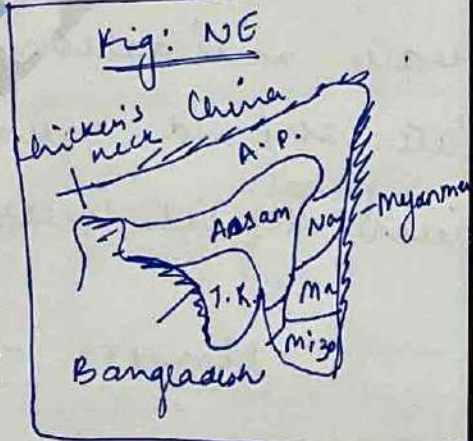 Fig: NE
Chicken's
neck
China
A.P.
Assam
Na
Myanmar
J.K.
Ma
Mizo
Bangladesh